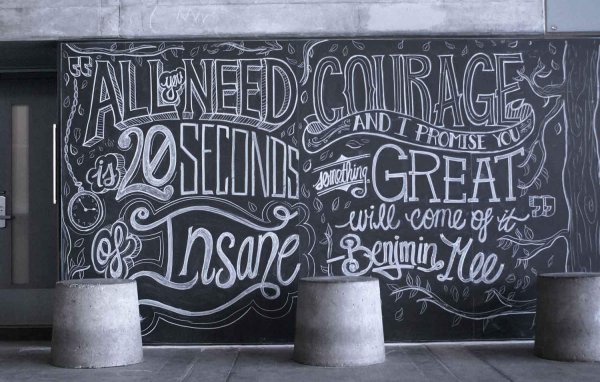 "ALL you NEED
is 20 SECONDS
of Insane
COURAGE
AND I PROMISE YOU
something GREAT
will come of it"
-Benjmin Mee